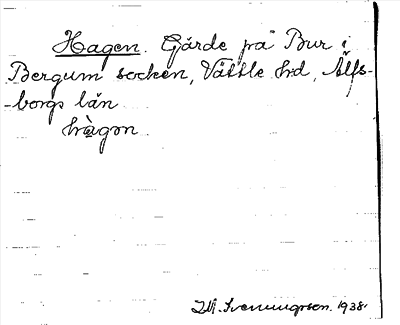 Hagen. Gärde på Bur i
Bergum socken, Vättle hd, Älfs-
-borgs län
hàgən.
M. Svenningsen. 1938.